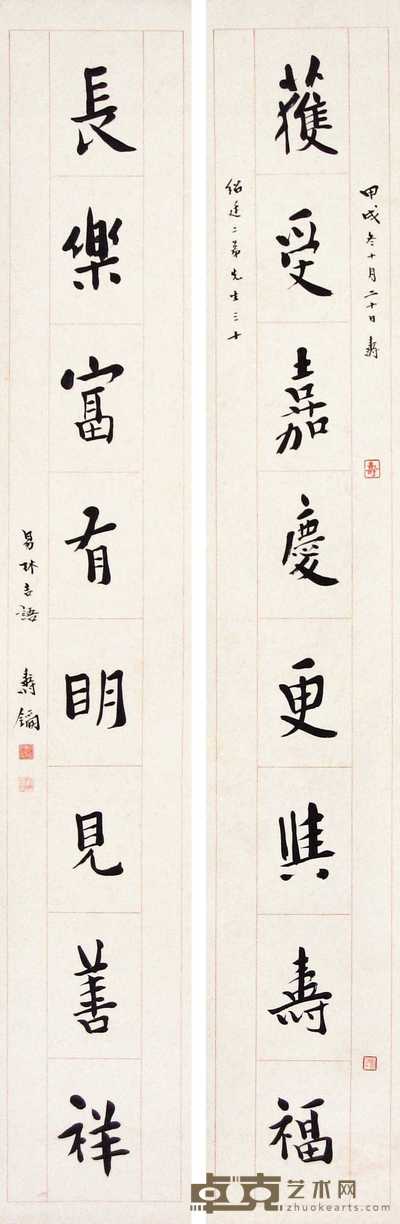 甲戌冬十月二十日壽
獲受嘉慶更興壽福
紹廷二弟先生三十
長樂富有眀見善祥
易林吉語 壽鏞
卓克艺术网
zhuokearts.com